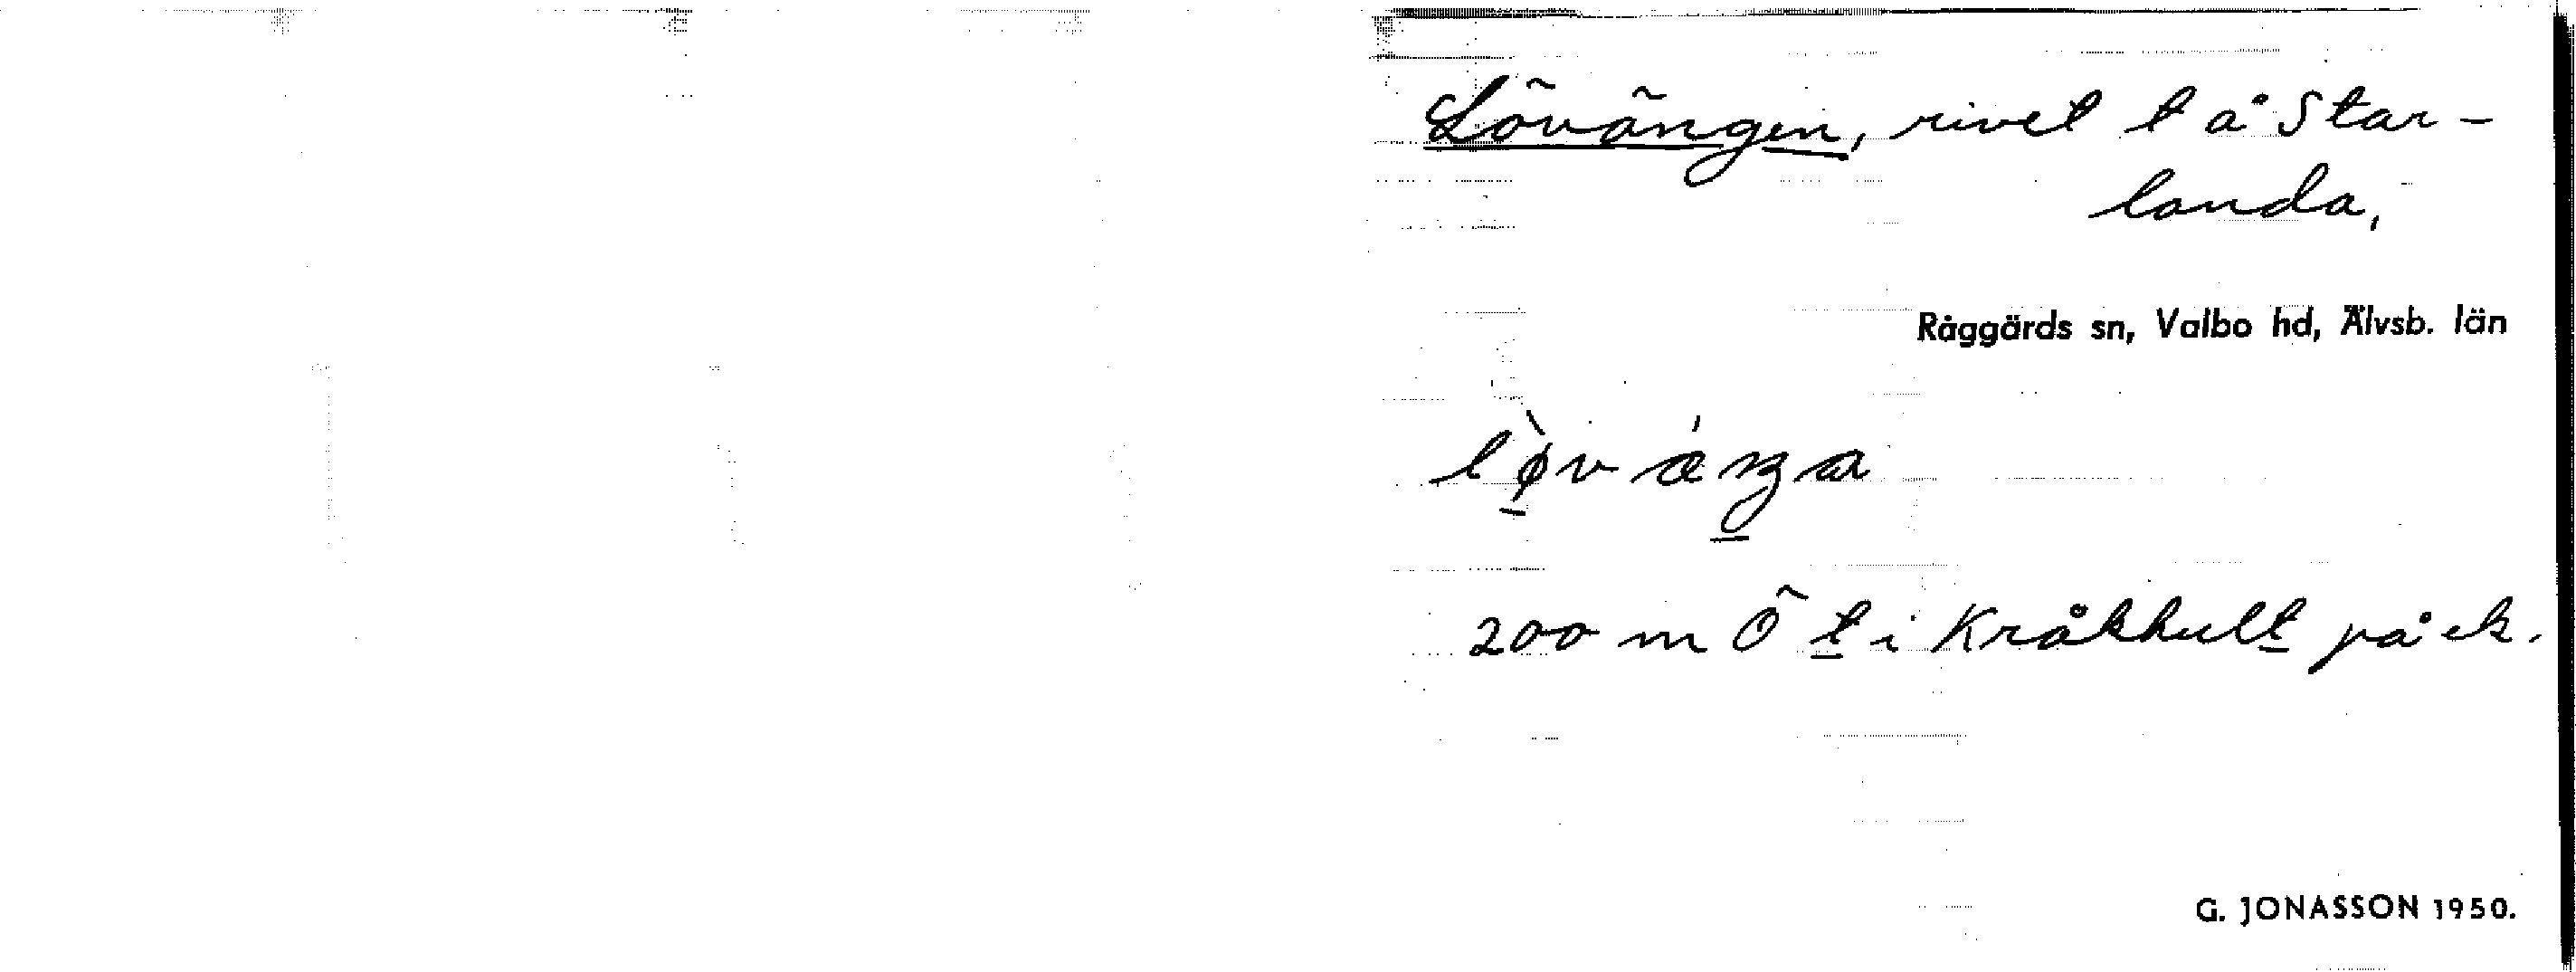 Lövängen, rivet t å Star-
landa,
Råggärds sn, Valbo hd, Älvsb. län
200 m Ö t i Kråkhult på ek.
G. JONASSON 1950.